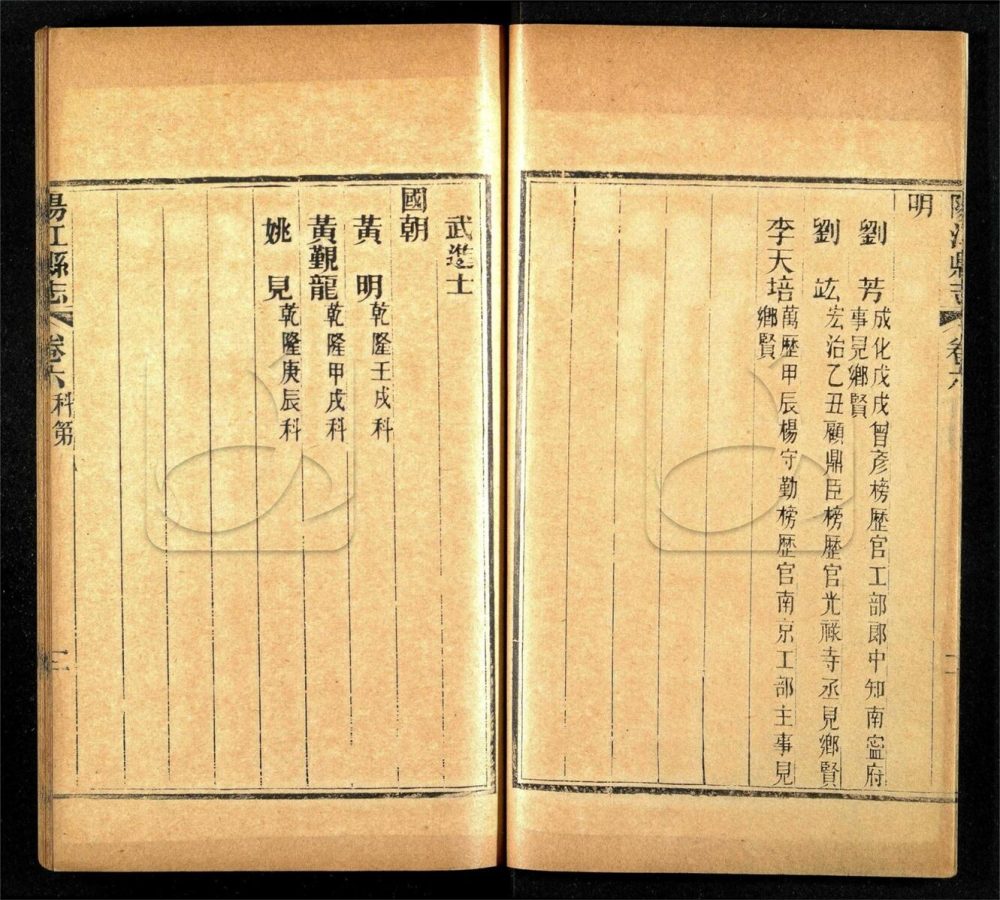 陽江縣志 卷六
明
劉芳 成化戊戌曾彥榜歷官工部郎中知南寍府
事見鄉賢
劉竑 宏治乙丑顧鼎臣榜歷官光祿寺丞見鄉賢
李天培 萬歷甲辰楊守勤榜歷官南京工部主事見
鄉賢
武進士
國朝
黃明 乾隆壬戌科
黃觀龍 乾隆甲戌科
姚見 乾隆庚辰科
陽江縣志 卷六 科第 二